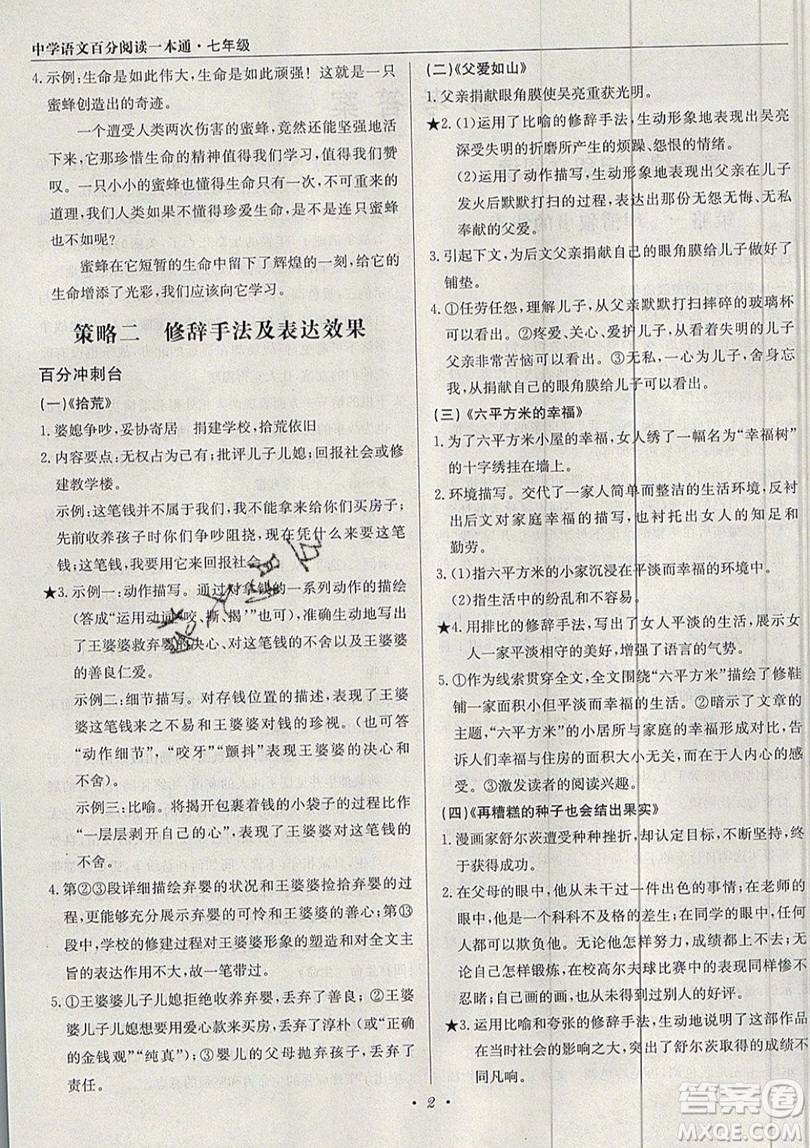 中学语文百分阅读一本通·七年级
4. 示例：生命是如此伟大，生命是如此顽强！这就是一只
蜜蜂创造出的奇迹。
一个遭受人类两次伤害的蜜蜂，竟然还能坚强地活
下来，它那珍惜生命的精神值得我们学习，尊重生命的
道理，我们人类应该懂得。一只小小的蜜蜂也懂得珍
惜生命，我们人类不也应懂得珍爱生命，是不是连只蜜蜂
也不如呢？
蜜蜂在它短暂的生命中留下了辉煌的一刻，给它的
生命增添了光彩，我们应该向它学习。
策略二 修辞手法及表达效果
百分冲刺台
(一)《拾荒》
1. 婆媳争吵，妥协寄居 捐建学校，拾荒依旧
2. 内容要点：无权占为己有；批评儿子儿媳；回报社会或修
建教学楼。
示例：这笔钱并不属于我，我不能给你们买房子；
先前收养孩子时你们争吵阻挠，现在凭什么来要这
笔钱，我要用这笔钱来回报社会。
★3. 示例一：动作描写。通过对拿钱的一系列动作的描绘
(答成“运用动词‘咬、撕、揭’”也可)，准确生动地写出
了王婆婆救弃婴的决心、对这笔钱的不舍以及王婆婆
的善良仁爱。
示例二：细节描写。对存钱位置的描述，表现了王婆
婆这笔钱来得艰难和王婆婆对钱的珍视。(或答出
“动作细节”，“咬牙”“颤抖”表现了王婆婆的决心和
不舍。)
示例三：比喻。将揭开包裹着钱的小袋子的过程比作
“一层层剥开自己的心”，表现了王婆婆对这笔钱的
不舍。
4. 第②③段详细描绘弃婴的状况和王婆婆捡拾弃婴的过
程，突出表现弃婴的可怜和王婆婆的善良与爱心。第⑬
段中，学校的修建过程对王婆婆形象的塑造和对文章主
旨的表达作用不大，所以略写。
5. ①王婆婆儿子儿媳拒绝收养弃婴，丢弃了善良；②王婆
婆儿子儿媳想要用弃婴父母的捐款买房，丢弃了淳朴(或“正确
的金钱观”“纯真”)；③弃婴的父母抛弃孩子，丢弃了
责任。
(二)《父爱如山》
1. 父亲捐献眼角膜使吴亮重获光明。
★2. (1)运用了比喻的修辞手法，生动形象地表现出吴亮
深受失明的折磨所产生的烦躁、怨恨的情绪。
(2)运用了动作描写，生动形象地表现出父亲在儿子
发火后默默打扫的过程，表现出父亲默默无闻、无私
奉献的父爱。
3. 引起下文，为后文父亲捐献自己的眼角膜给儿子做好了
铺垫。
4. ①任劳任怨，理解儿子，从父亲默默打扫摔碎的玻璃杯
可以看出。②疼爱、关心、爱护儿子，从看着失明的儿子
父亲非常苦恼可以看出。③无私，从父亲要捐献自己的
眼角膜给儿子可以看出。
(三)《六平方米的幸福》
1. 为了六平方米小屋的幸福，女人绣了一幅“幸福树”
的十字绣挂在墙上。
2. 环境描写。交代了一家人简单而平淡的生活环境，反
衬出后文对家庭幸福的描写，也衬托出女人的知足和
勤劳。
3. (1)指六平方米的小家沉浸在平淡而幸福的生活中。
(2)指生活中的纷乱和不安。
★4. 用排比的修辞手法，写出了女人平淡幸福，展示出女
人一家平淡相守的美好，增强了语言的气势。
5. ①作为线索贯穿全文，全文围绕“六平方米”描绘了修鞋
铺一家面积小但平淡而幸福的生活。②暗示了文章的主
题，“六平方米”的小居所与家庭的幸福成对比，告
诉人们幸福与住房的面积无关，而在于人内心的感
受。③激发读者的阅读兴趣。
(四)《再糟糕的种子也会结出果实》
1. 漫画家舒尔茨遭受种种挫折，却认定目标，不断坚持，终
于获得成功。
2. 在父母的眼中，他从未干过一件出色的事情；在老师的
眼中，他就是一个科科不及格的差生；在其他人眼中，他们
可以欺负他。无论他怎样努力学习，成绩都上不来。
无论他怎样锻炼，在校高尔夫球比赛中的表现都惨不
忍睹。
★3. 运用比喻和夸张的修辞手法，生动地写出了这部作品
在当时社会的影响之大，表现了舒尔茨取得的成就的不
同凡响。
· 2 ·
答案圈